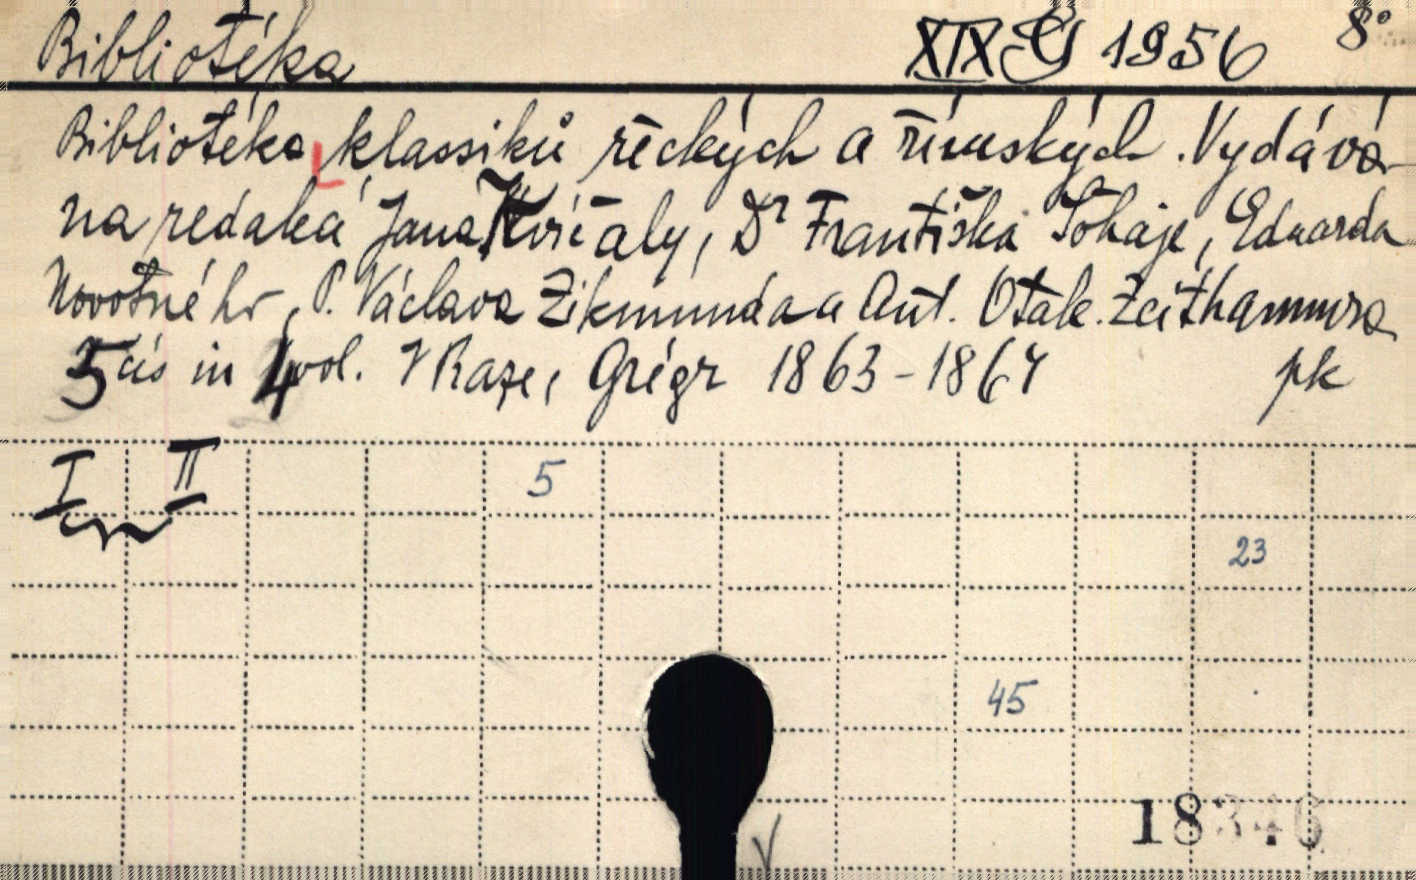 Bibliotéka XIX G 1956 8°
Bibliotéka klassikú řeckých a římských. Vydává-
na redakcí Jana Kvíčaly, Dr Františka Šohaje, Eduarda
Novotného, P. Václava Zikmunda a Ant. Otak. Zeithammra
5 čís in 4 vol. V Raze, Grégr 1863-1867 pk
I II 5
23
45
18346
V